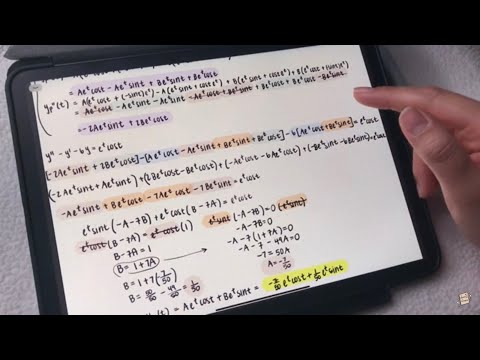 = Aeᵗcost - Aeᵗsint + Beᵗsint + Beᵗcost
yp"(t) = A(eᵗcost + (-sint)eᵗ) - A(eᵗsint + costeᵗ) + B(eᵗsint + costeᵗ) + B(eᵗcost + (-sint)eᵗ)
= Aeᵗcost - Aeᵗsint - Aeᵗsint - Aeᵗcost + Beᵗsint + Beᵗcost + Beᵗcost - Beᵗsint
= -2Aeᵗsint + 2Beᵗcost
y" - y' - 6y = eᵗcost
[-2Aeᵗsint + 2Beᵗcost] - [Aeᵗcost - Aeᵗsint + Beᵗsint + Beᵗcost] - 6[Aeᵗcost + Beᵗsint] = eᵗcost
(-2Aeᵗsint + Aeᵗsint) + (2Beᵗcost - Beᵗcost) + (-Aeᵗcost - 6Aeᵗcost) + (-Beᵗsint - 6Beᵗsint) = eᵗcost
-Aeᵗsint + Beᵗcost - 7Aeᵗcost - 7Beᵗsint = eᵗcost
eᵗsint(-A-7B) + eᵗcost(B-7A) = eᵗcost
eᵗcost(B-7A) = eᵗcost(1)
B-7A = 1
B = 1+7A
B = 1+7(-7/50)
B = 50/50 - 49/50 = 1/50
eᵗsint(-A-7B) = 0(eᵗsint)
-A-7B = 0
-A-7(1+7A) = 0
-A-7-49A = 0
-7 = 50A
A = -7/50
(t) = Aeᵗcost + Beᵗsint = -7/50 eᵗcost + 1/50 eᵗsint